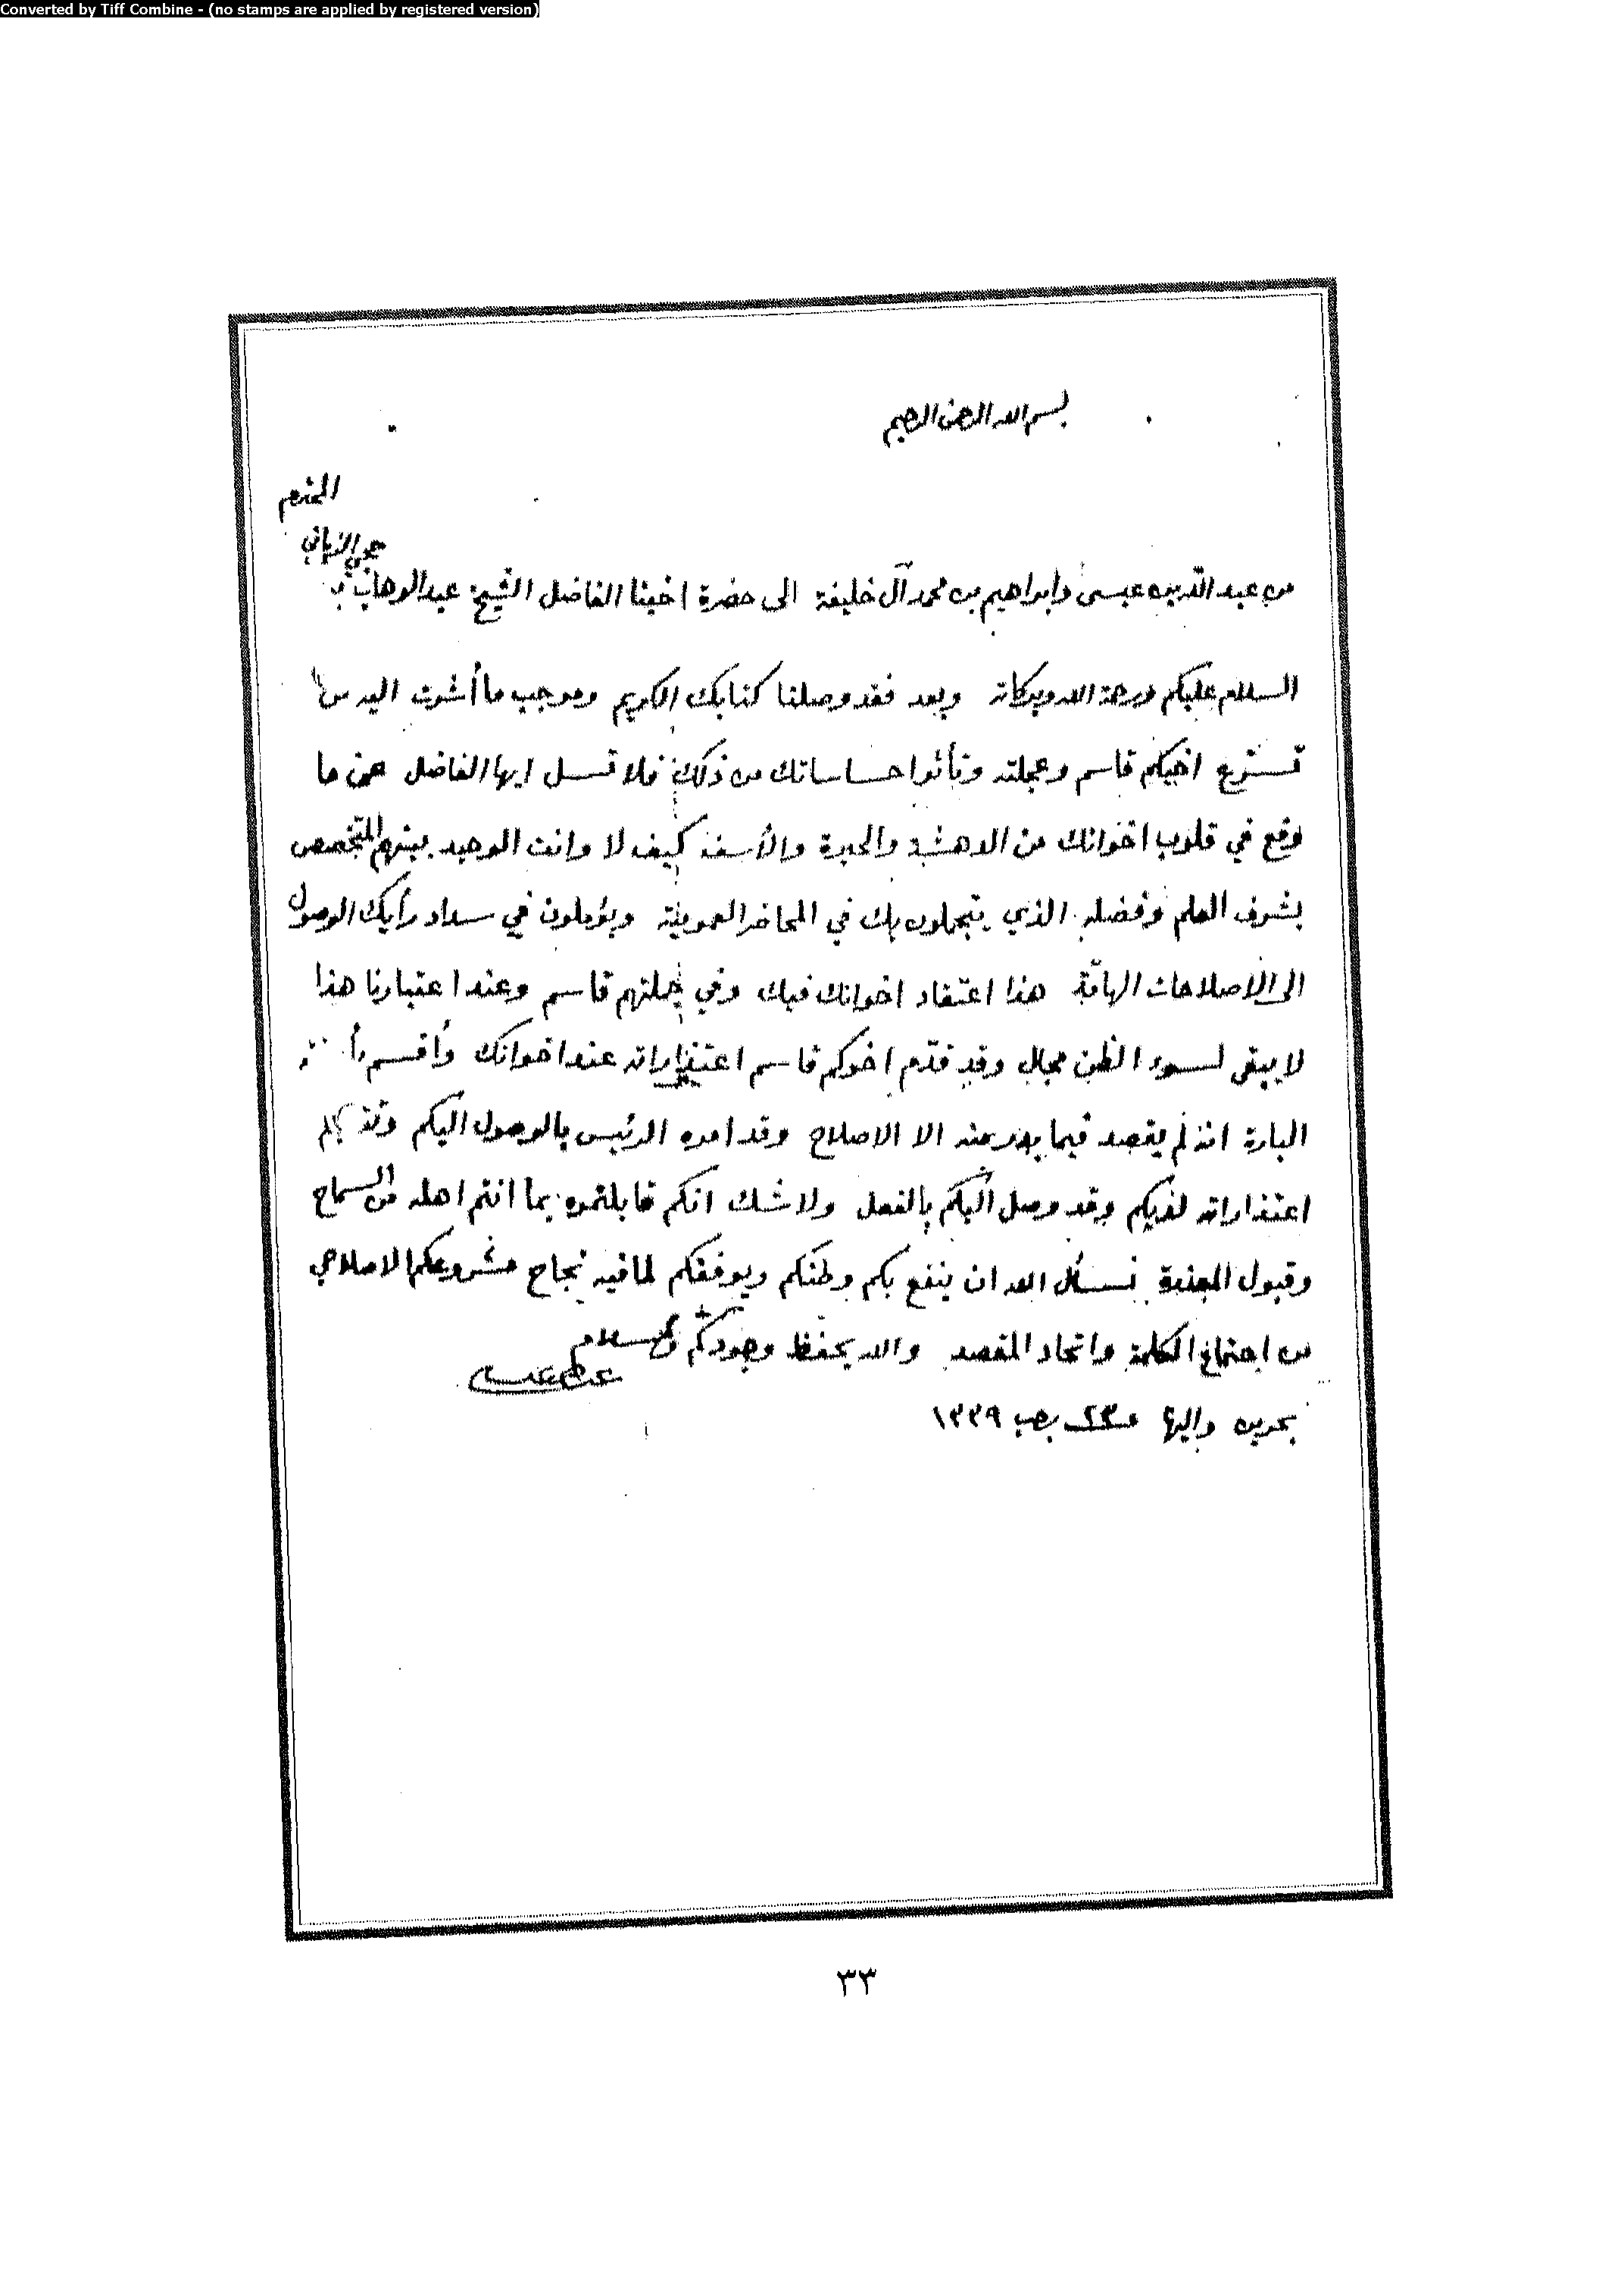 Converted by Tiff Combine - (no stamps are applied by registered version)
بسم الله الرحمن الرحيم
المحترم
حجي الزياني
من عبد الله بن عيسى وابراهيم بن محمد آل خليفة الى حضرة اخينا الفاضل الشيخ عبدالوهاب بن
السلام عليكم ورحمة الله وبركاته وبعد فقد وصلنا كتابك الكريم وموجب ما أشرت اليه من
تسرع اخيكم قاسم وعجلته وتأثر احساساتك من ذلك فلا تسل ايها الفاضل عن ما
وقع في قلوب اخوانك من الدهشة والحيرة والأسف كيف لا وانت الوحيد بينهم المتخصص
بشرف العلم وفضله الذي يتجملون بك في المحاضر العمومية ويؤملون في سداد رأيك الوصول
الى الاصلاحات الهامّة هذا اعتقاد اخوانك فيك وفي جملتهم قاسم وعند اعتبارنا هذا
لا يبقى لسوء الظن مجال وقد قدّم اخوكم قاسم اعتذاراته عند اخوانك وأقسم
البارة انه لم يقصد فيما بدر منه الا الاصلاح وقد امره الرئيس بالوصول اليكم
اعتذاراته لديكم وقد وصل اليكم بالفعل ولا شك انكم قابلتموه بما انتم اهله من السماح
وقبول المعذرة نسأل الله ان ينفع بكم وطنكم ويوفقكم لما فيه نجاح مشروعكم الاصلاحي
من اجتماع الكلمة واتحاد المقصد والله يحفظ وجودكم والسلام
بحرين واليها ٢٣ رجب ١٣٣٩
٣٣